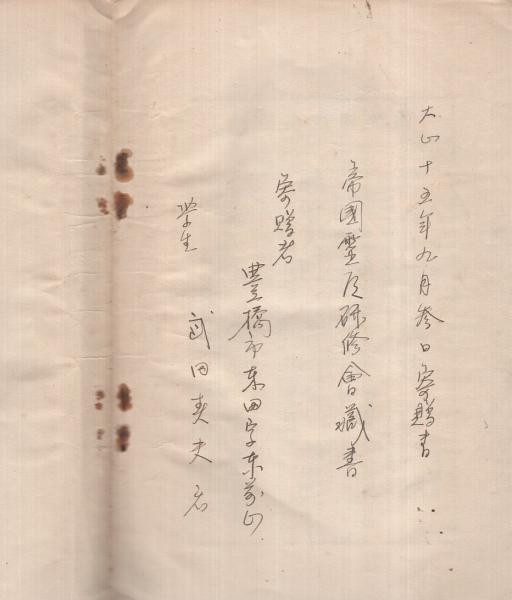 大正十五年九月参日寄贈書
帝國霊友研修會蔵書
寄贈者
豊橋市東田字東前山
学生 武田美夫君